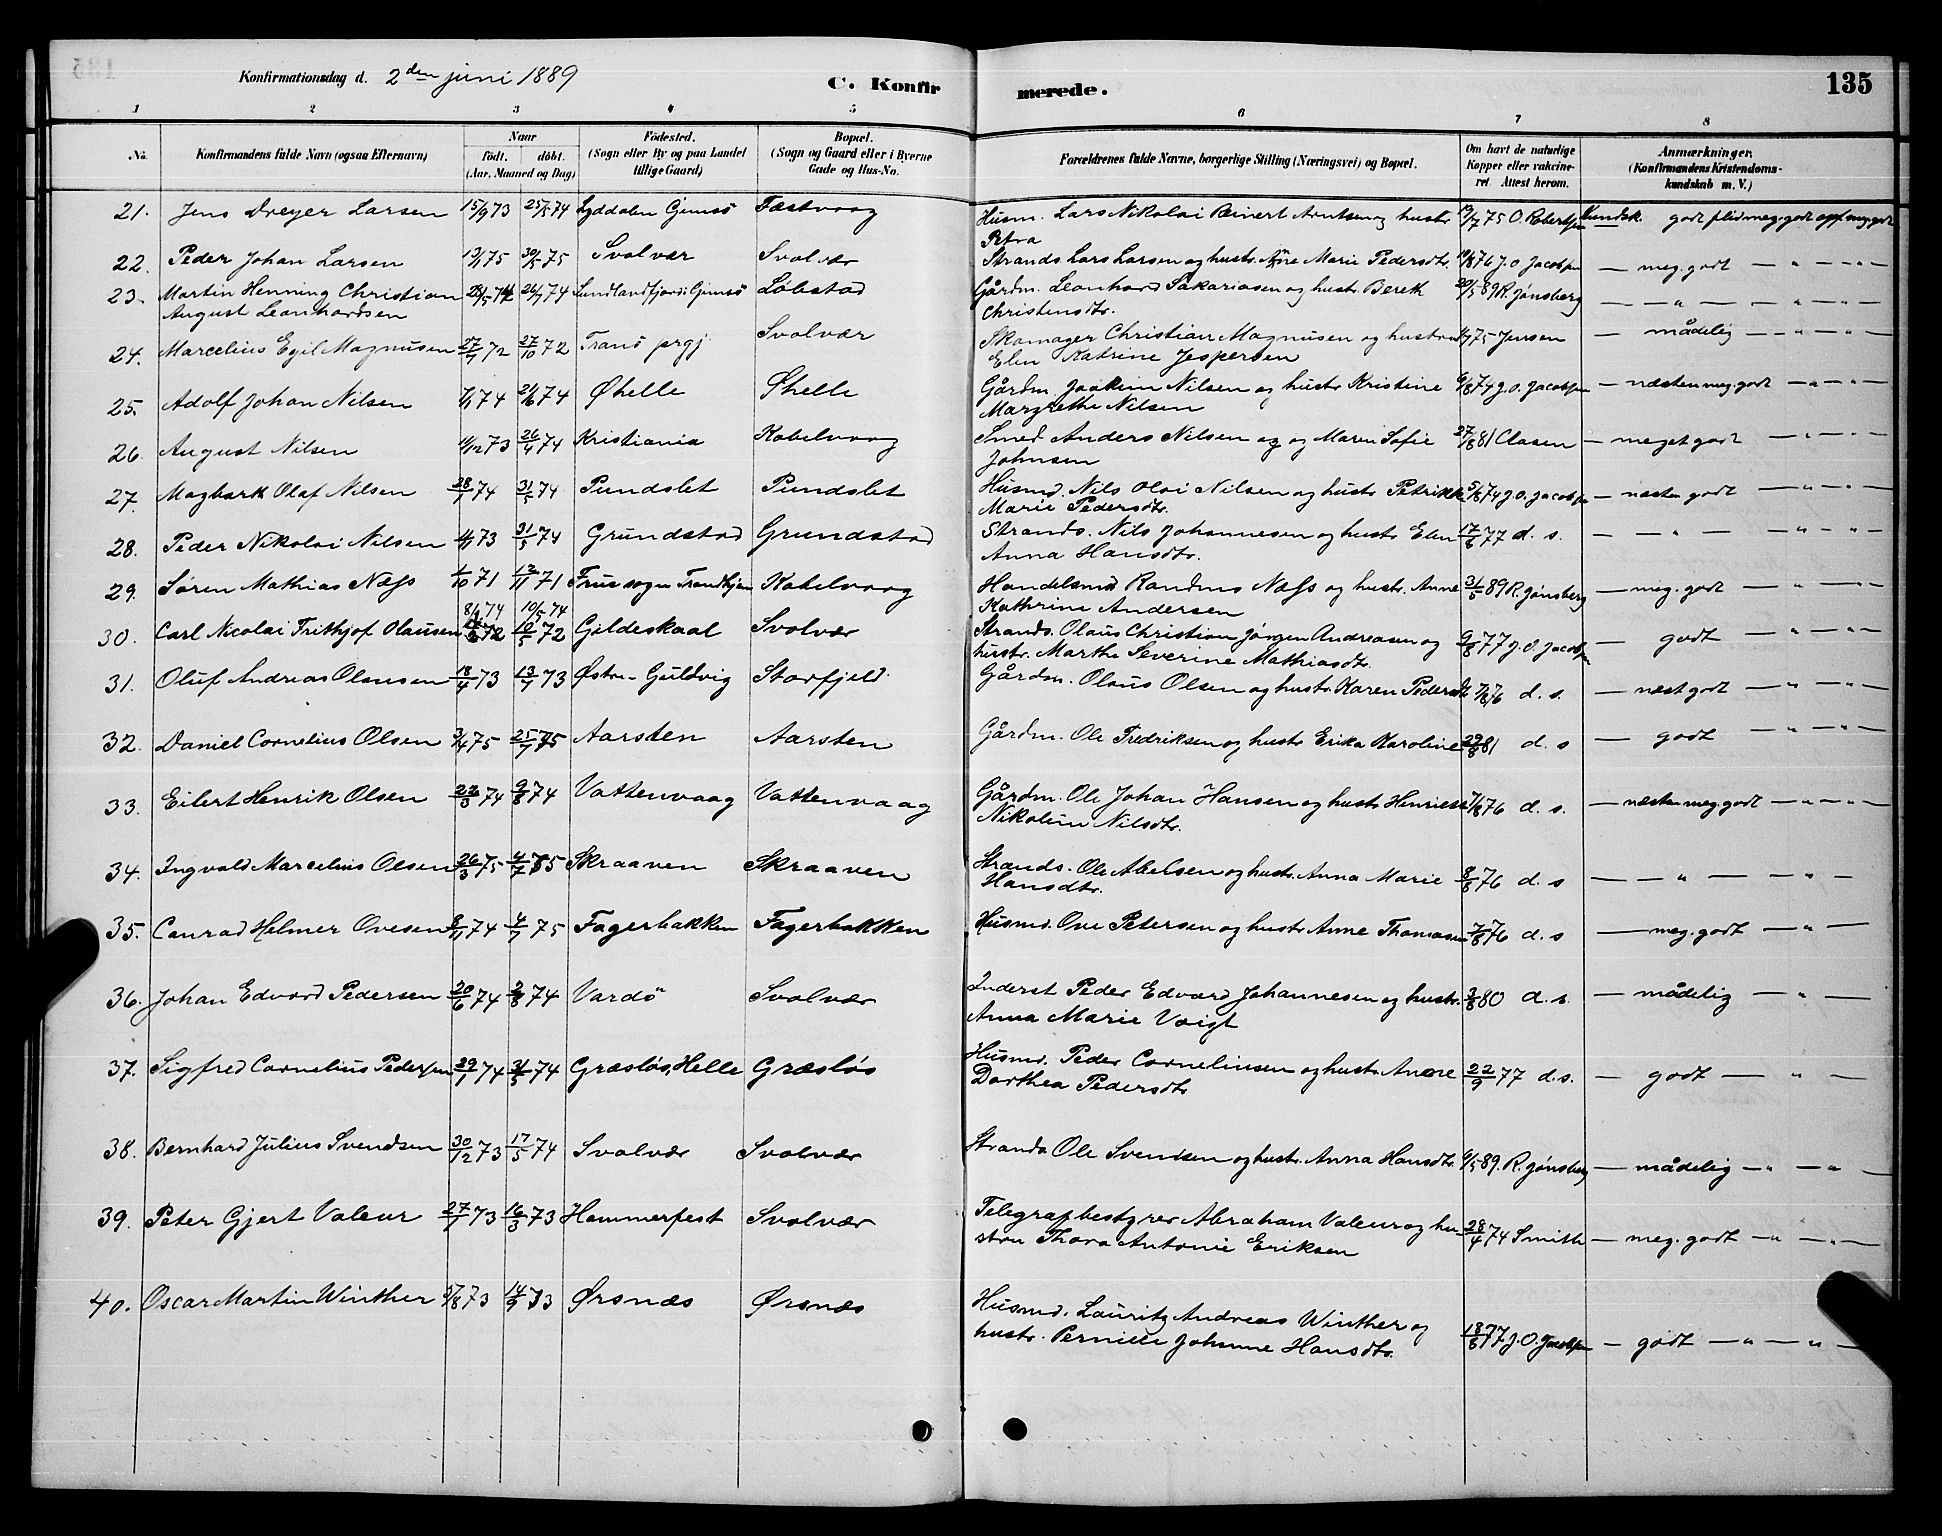 Konfirmationsdag d. 2den juni 1889
C. Konfirmerede.
135
1 2 3 4 5 6 7 8
No. Konfirmandens fulde Navn (ogsaa Efternavn) Naar födt. döbt. (Aar, Maaned og Dag) Födested. (Sogn eller By og paa Landet tillige Gaard) Bopæl. (Sogn og Gaard eller i Byerne Gade og Hus-No. Forældrenes fulde Navne, borgerlige Stilling (Næringsvei) og Bopæl. Om havt de naturlige Kopper eller vakcineret Attest herom. Anmærkninger. (Konfirmandens Kristendomskundskab m. V.)
21. Jens Dreyer Larsen 15/9 73 25/5 74 Lyddalen Gimsö Fæstvaag Husm. Lars Nikolai Beinert Arntsen og hustr. 75 O. Robertsen Kundsk. godt flid meg. godt opf. meg. godt
Petra
22. Peder Johan Larsen 13/1 75 30/5 75 Svolvær Svolvær Strands. Lars Larsen og hustr. Ane Marie Pedersdtr. 76 J. O. Jacobsen — meg. godt — " — " —
23. Martin Henning Christian 26/7 74 Sundlandfjord i Gimsö Löbstad Gårdm. Leonhard Sakariasen og hustr. Bereth 20/5 89 R. Jönsberg — " — " — " —
August Leonhardsen Christensdtr.
24. Marcelius Egil Magnusen 27/7 72 27/10 72 Tranö prgj. Svolvær Skomager Christian Magnusen og hustru 75 Jensen — mådelig — " — " —
Elen Katrine Jespersen
25. Adolf Johan Nilsen 1/1 74 74 Øhelle Øhelle Gårdm. Joakim Nilsen og hustr. Kristine 6/8 74 J. O. Jacobsen — næsten meg. godt — " — " —
Margrethe Nilsen
26. August Nilsen 11/12 73 26/4 74 Kristiania Kabelvaag Smed Anders Nilsen og og Maren Sofie 27/8 81 Clasen — meget godt — " — " —
Johnsen
27. Magbark Olaf Nilsen 28/1 74 31/5 74 Pundslet Pundslet Husmd. Nils Olai Nilsen og hustr. Petrikke 5/8 74 J. O. Jacobsen — næsten godt — " — " —
Marie Pedersdtr.
28. Peder Nikolai Nilsen 73 31/5 74 Grundstad Grundstad Strands. Nils Johannesen og hustr. Elen 17/8 77 d. s. — " — " — " —
Anna Hansdtr.
29. Søren Mathias Næss 1/10 71 12/11 71 Frue sogn Trondhjem Kabelvaag Handelsmd. Randens Næss og hustr. Anne 31/5 89 R. Jönsberg — meg. godt — " — " —
Kathrine Andersen
8/3 74 10/5 74
30. Carl Nicolai Frithjof Olausen 72 10/5 72 Gildeskaal Svolvær Strands. Olaus Christian Jörgen Andreasen og 9/8 77 J. O. Jacobsen — godt — " — " —
hustr. Marthe Severine Mathiasdtr.
31. Oluf Andreas Olausen 18/4 73 13/7 73 Østre-Guldvig Storfjeld Gårdm. Olaus Olsen og hustr. Karen Pedersdtr. 7/8 76 d. s. — næst godt — " — " —
32. Daniel Cornelius Olsen 3/4 75 25/7 75 Aarsten Aarsten Gårdm. Ole Fredriksen og hustr. Erika Karoline 29/8 81 d. s — godt — " — " —
33. Eilert Henrik Olsen 22/3 74 9/8 74 Vattenvaag Vattenvaag Gårdm. Ole Johan Hansen og hustr. Henriette 7/8 76 d. s. — næsten meg. godt — " — " —
Nikoline Nilsdtr.
34. Ingvald Marcelius Olsen 26/3 75 4/7 75 Skraaven Skraaven Strands. Ole Abelsen og hustr. Anna Marie 8/8 76 d. s — " — " —
Hansdtr.
35. Conrad Helmer Ovesen 8/11 74 4/7 75 Fagerbakken Fagerbakken Husmd. Ove Petersen og hustr. Anne Thomasen 7/8 76 d. s — meg. godt — " —
36. Johan Edvard Pedersen 20/6 74 2/8 74 Vardö Svolvær Inderst Peder Edvard Johannesen og hustr. 3/8 80 d. s. — mådelig — " —
Anna Marie Voigt
37. Sigfred Cornelius Pedersen 29/1 74 31/5 74 Græsløs, Helle Græsløs Husmd. Peder Corneliusen og hustr. Anne 22/9 77 d. s. — godt — " —
Dorthea Pedersdtr
38. Bernhard Julius Svendsen 30/12 73 17/5 74 Svolvær Svolvær Strands Ole Svendsen og hustr. Anna Hansdtr. 9/5 89. R. Jönsberg — mådelig — " — " —
39. Peter Gjert Valeur 27/1 73 16/3 73 Hammerfest Svolvær Telegrafbestyrer Abraham Valeur og hu- 28/4 74 Smith — meg. godt — " — " —
stru Thora Antonie Eriksen
40. Oscar Martin Winther 5/8 73 14/9 73 Ørsnæs Ørsnæs Husmd. Lauritz Andreas Winther og 18/8 77 J. O. Jacobsen — godt — " — " —
hustr. Pernille Johanne Hansdtr.